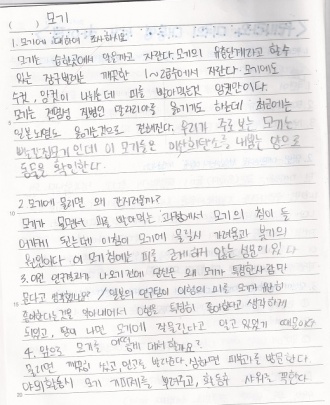 ( ) 모기
1. 모기에 대하여 조사하시오
모기는 습한곳에서 알을까고 자란다. 모기의 유충인
있는 장구벌레는 깨끗한 1~2급수에서 자란다. 모기에도
수컷, 암컷이 나뉘는데 피를 빨아먹는건 암컷만이다.
모기는 전염성 질병인 말라리아를 옮기기도 하는데 최근에는
일본뇌염도 옮기는것으로 전해진다. 우리가 주로 보는 모기는
빨간집모기인데 이 모기들은 이산화탄소를 내뿜는 것으로
동물을 확인한다.
2. 모기에 물리면 왜 간지러울까?
모기가 물면서 피를 빨아먹는 과정에서 모기의 침이 들
어가게 되는데 이침이 모기에 물릴시 가려움과 붓기의
원인이다. 이 모기침에는 피를 굳게하지 않는 성분이 있다
3. 이런 연구결과가 나오기전에 당신은 왜 모기가 특정한사람만
문다고 생각했나요? / 일본의 연구팀이 이형의 피를 모기가 원히
좋아한다는것을 알아내어서 O형은 특별히 좋아한다고 생각하게
되었고, 땀이 나면 모기에 작용한다고 믿고 있었기 때문이다
4. 앞으로 모기를 어떻게 대처할까요?
물리면 깨끗이 씻고, 연고를 바른다. 심하면 피부과를 방문한다.
야외활동시 모기 기피제를 뿌려주고, 활동후 샤워를 꼭한다.